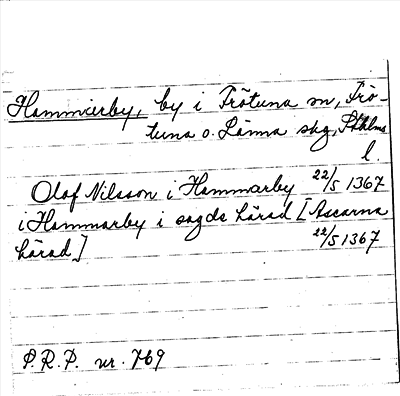 Hammarby, by i Frötuna sn, Frö-
tuna o. Länna skg, Sthlms
l.
Olof Nilsson i Hammarby 22/5 1367
i Hammarby i sagde härad [Ascarna
härad] 22/5 1367
P.R.P. nr. 769